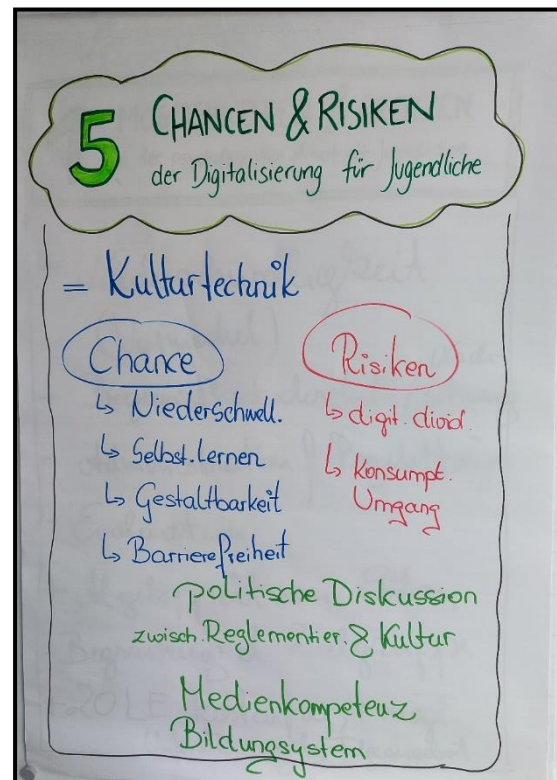 5 CHANCEN & RISIKEN
der Digitalisierung für Jugendliche
= Kulturtechnik
Chance
↳ Niederschwell.
↳ Selbst.lernen
↳ Gestaltbarkeit
↳ Barrierefreiheit
Risiken
↳ digit. divid.
↳ Konsumpt.
Umgang
politische Diskussion
zwisch. Reglementier. & Kultur
Medienkompetenz
Bildungsystem